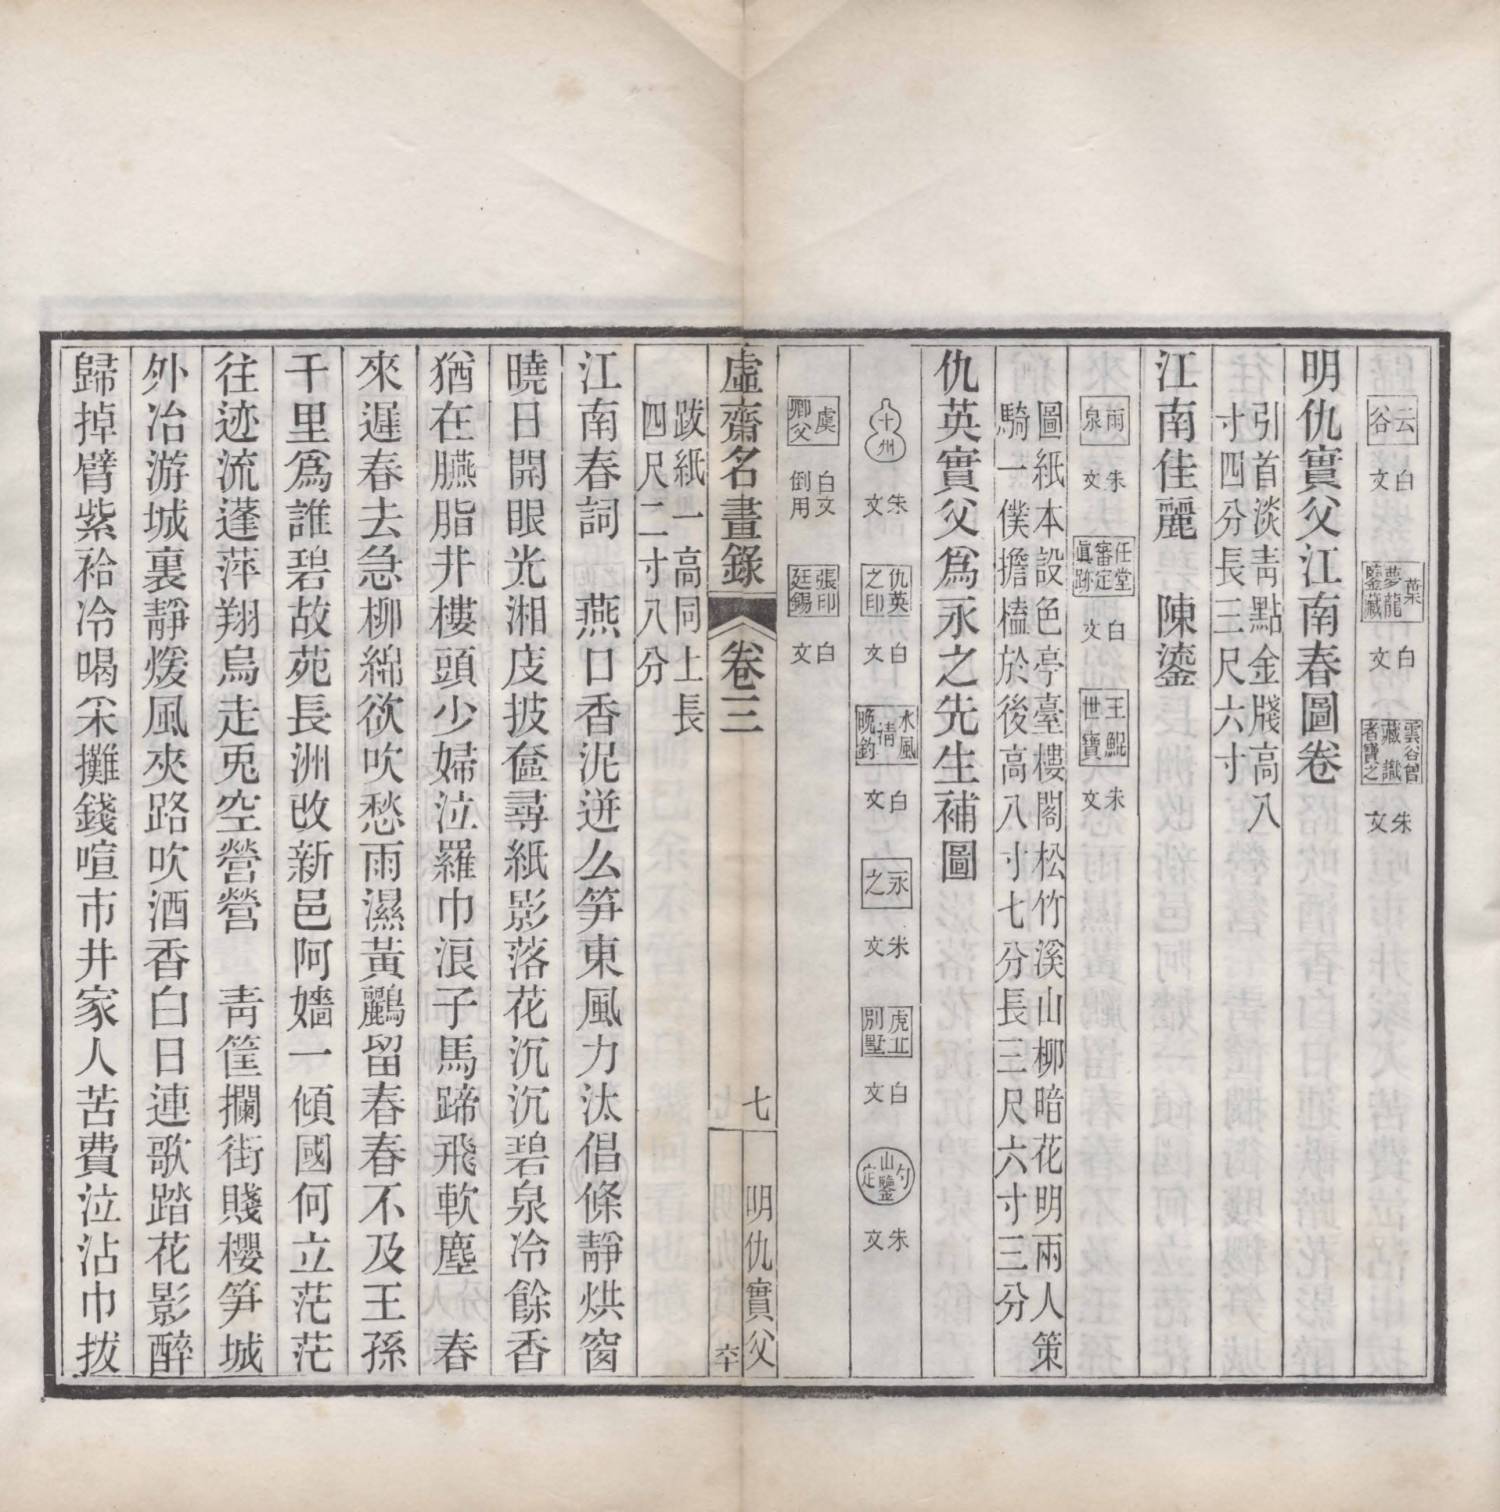 云谷 白文 葉夢龍鑒藏 白文 雲谷曾藏識者寶之 朱文
明仇實父江南春圖卷
引首淡青點金牋高八
寸四分長三尺六寸
江南佳麗　陳鎏
雨泉 朱文 任堂審定眞跡 白文 王鯤世寶 朱文
圖紙本設色亭臺樓閣松竹溪山柳暗花明兩人策
騎一僕擔榼於後高八寸七分長三尺六寸三分
仇英實父爲永之先生補圖
十州 朱文 仇英之印 白文 水風清晚釣 白文 永之 朱文 虎丘別墅 白文 勺山鑒定 朱文
虞卿父 白文倒用 張印廷錫 白文
虛齋名畫錄 卷三 七 明仇實父
跋紙一高同上長
四尺二寸八分
江南春詞　燕口香泥迸么笋東風力汰倡條靜烘窗
曉日開眼光湘庋披奩尋紙影落花沉沉碧泉冷餘香
猶在臙脂井樓頭少婦泣羅巾浪子馬蹄飛軟塵　春
來遲春去急柳綿欲吹愁雨濕黃鸝留春春不及王孫
千里爲誰碧故苑長洲改新邑阿嬙一傾國何立茫茫
往迹流蓬萍翔烏走兎空營營　青筐攔街賤櫻笋城
外冶游城裏靜煖風夾路吹酒香白日連歌踏花影醉
歸掉臂紫袷冷喝采攤錢喧市井家人苦費泣沾巾拔